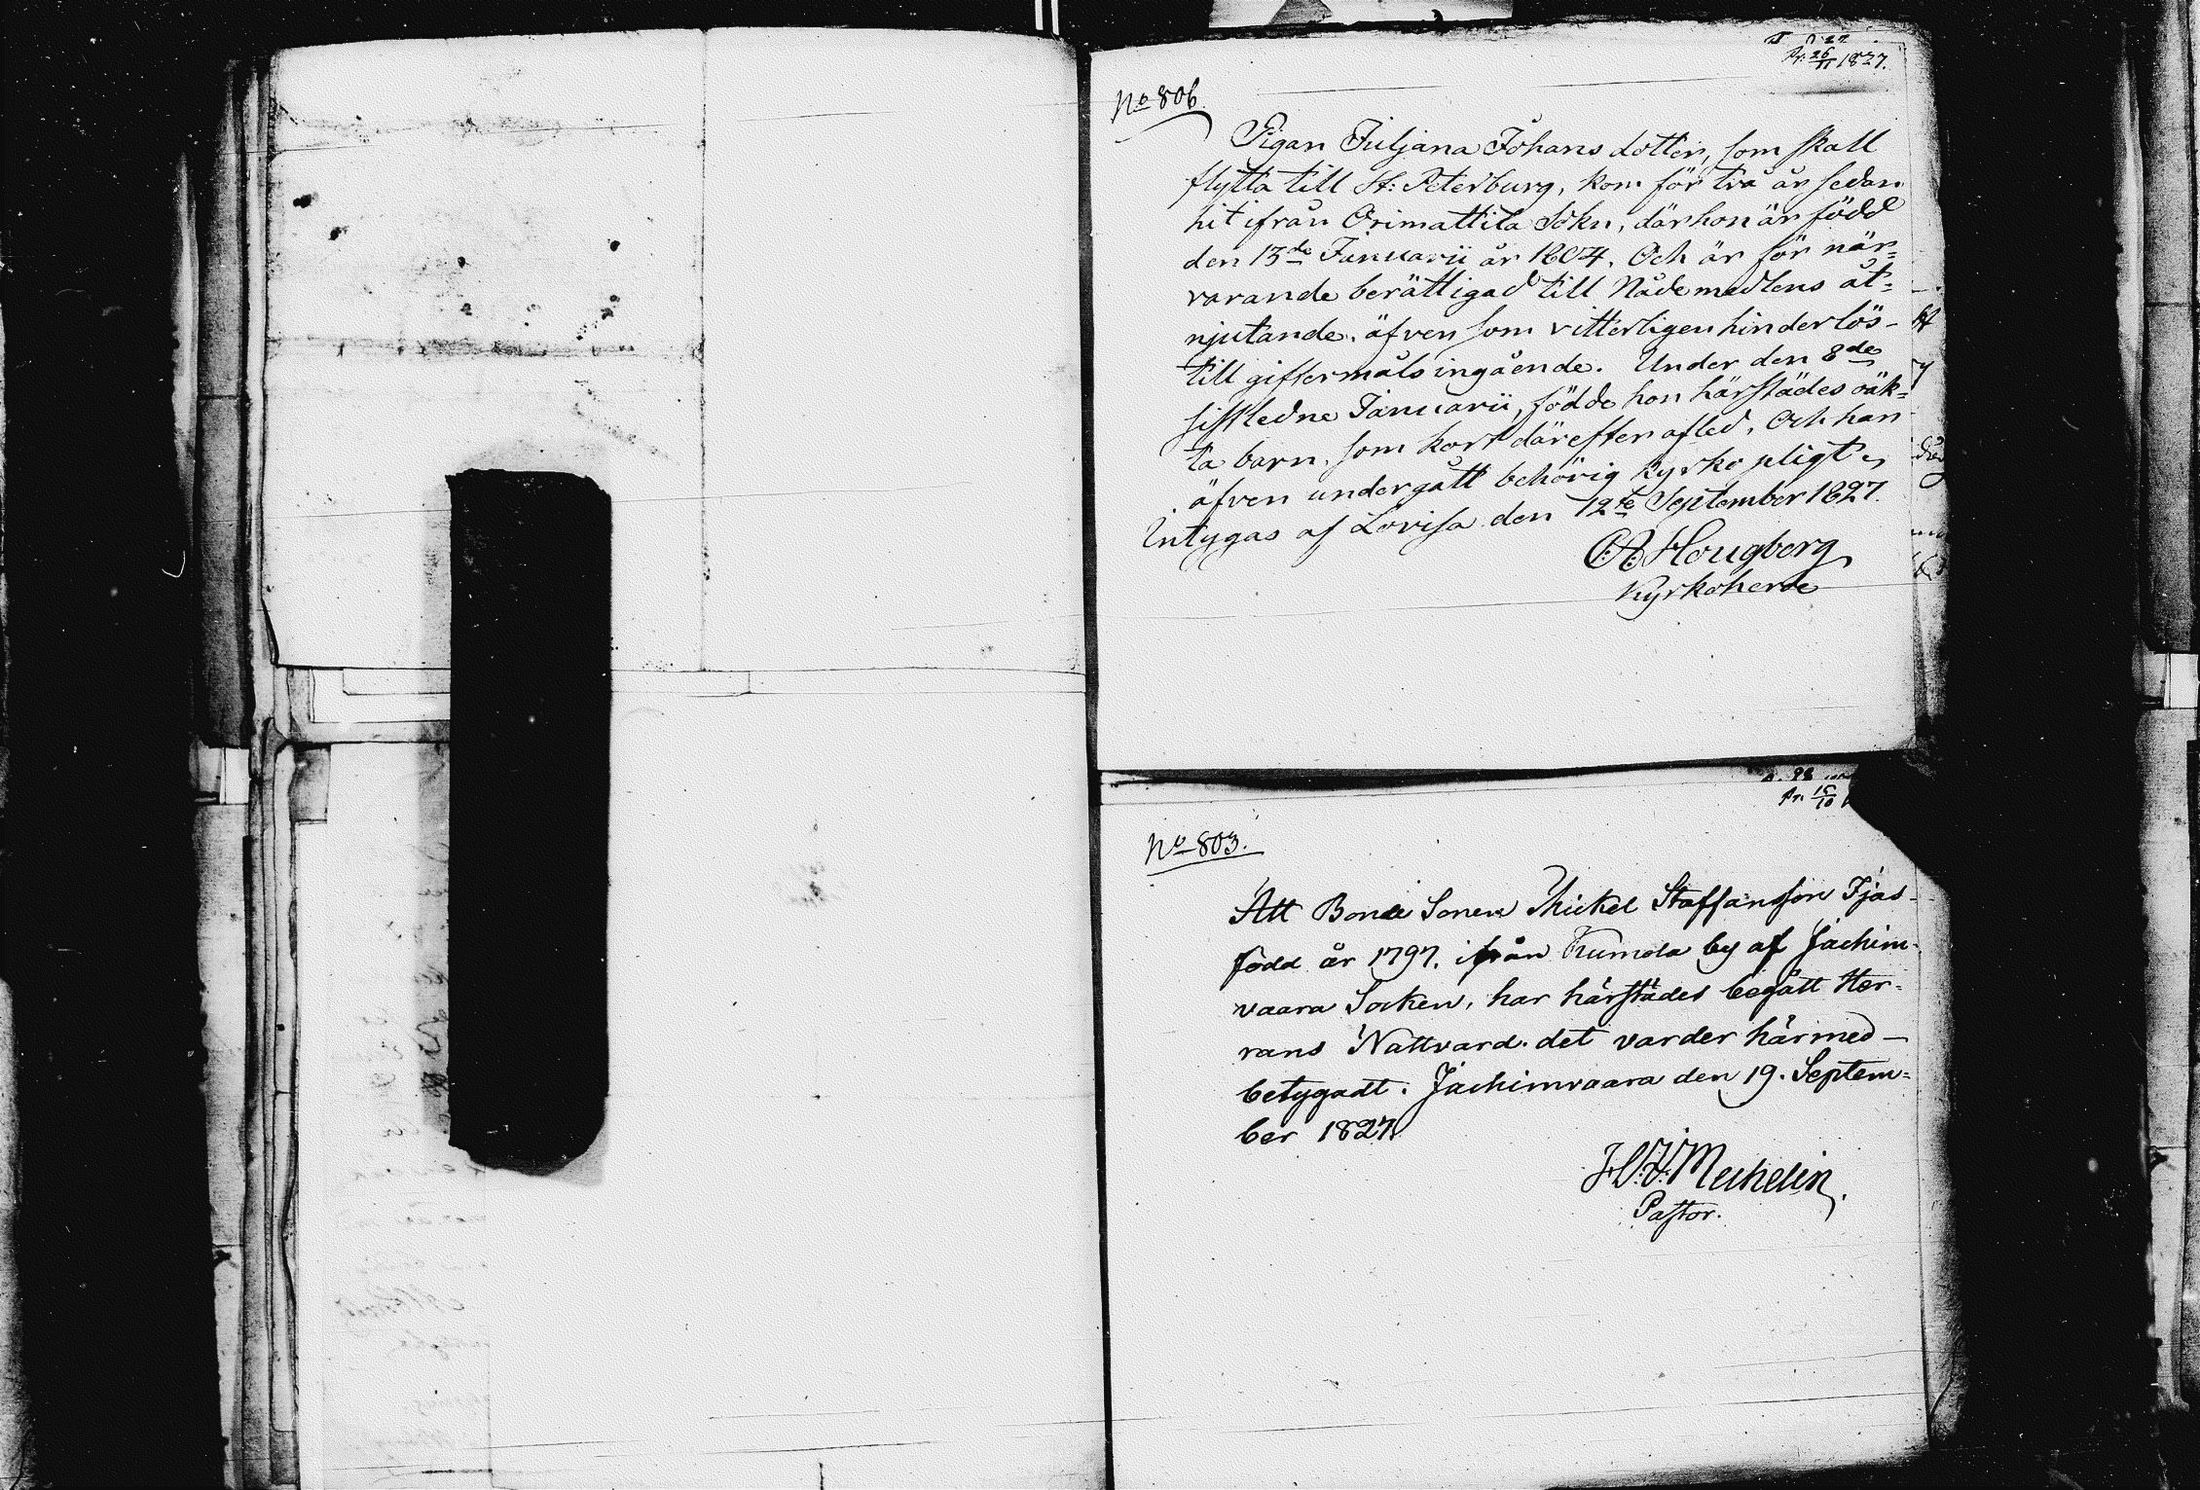 Pr. 26/11 1827.
No 806.
Pigan Juljana Johans dotter, som skall
flytta till St: Peterburg, kom för två år sedan
hit ifrån Orimattila Sokn, där hon är född
den 13de Januarii år 1804. Och är för när=
varande berättigad till Nådemedlens åt=
njutande, äfven som vitterligen hinderlös
till giftermåls ingående. Under den 8de
sistledne Januarii, födde hon härstädes oäk=
ta barn, som kort därefter afled, Och han
äfven undergått behörig Kyrko pligt,
Intygas af Lovisa den 12te September 1827.
C.A. Hougberg
Kyrkoherde
Pr. 15/10
No 803.
Att Bonde Sonen Mickel Staffansson Tjas
född år 1797. ifrån Kumola by af Jachim=
vaara Socken, har härstädes begått Her=
rans Nattvard. det varder härmed
betygadt. Jachimvaara den 19. Septem=
ber 1827.
Mechelin.
Pastor.